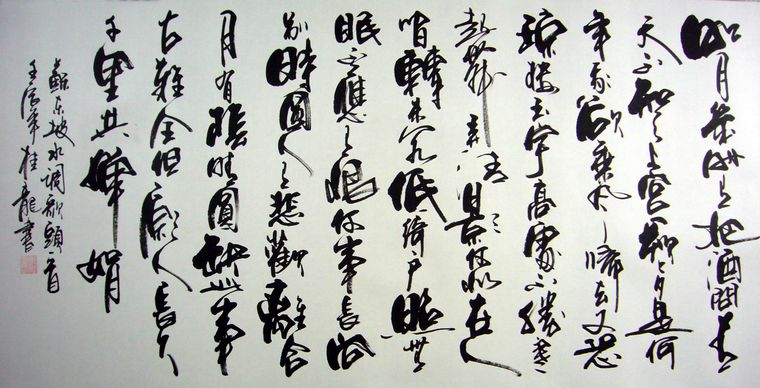 明月幾時有把酒問青
天不知天上宮闕今夕是何
年我欲乘風歸去又恐
瓊樓玉宇高處不勝寒
起舞弄清影何似在人
間轉朱閣低綺戶照無
眠不應有恨何事長向
別時圓人有悲歡離合
月有陰晴圓缺此事
古難全但願人長久
千里共嬋娟
蘇東坡水调歌頭一首
桂龍書